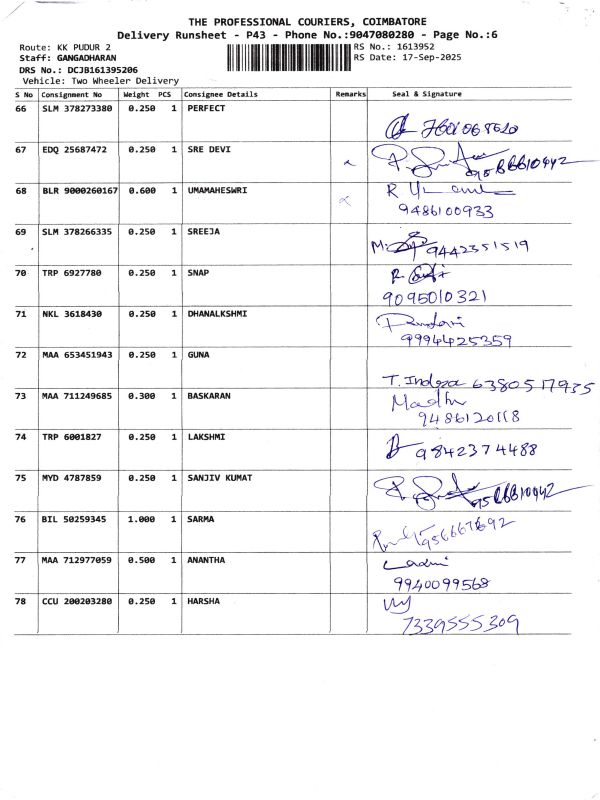 THE PROFESSIONAL COURIERS, COIMBATORE
Delivery Runsheet - P43 - Phone No.:9047080280 - Page No.:6
Route: KK PUDUR 2 RS No.: 1613952
Staff: GANGADHARAN RS Date: 17-Sep-2025
DRS No.: DCJB161395206
Vehicle: Two Wheeler Delivery
S No Consignment No Weight PCS Consignee Details Remarks Seal & Signature
66 SLM 378273380 0.250 1 PERFECT
67 EDQ 25687472 0.250 1 SRE DEVI
68 BLR 9000260167 0.600 1 UMAMAHESWRI
9486100933
69 SLM 378266335 0.250 1 SREEJA
9442351519
70 TRP 6927780 0.250 1 SNAP
9095010321
71 NKL 3618430 0.250 1 DHANALKSHMI
9994425359
72 MAA 653451943 0.250 1 GUNA
T. Indira 6380517935
73 MAA 711249685 0.300 1 BASKARAN
Madhu
9486120118
74 TRP 6001827 0.250 1 LAKSHMI
9842374488
75 MYD 4787859 0.250 1 SANJIV KUMAT
76 BIL 50259345 1.000 1 SARMA
77 MAA 712977059 0.500 1 ANANTHA
9940099568
78 CCU 200203280 0.250 1 HARSHA
7339555309